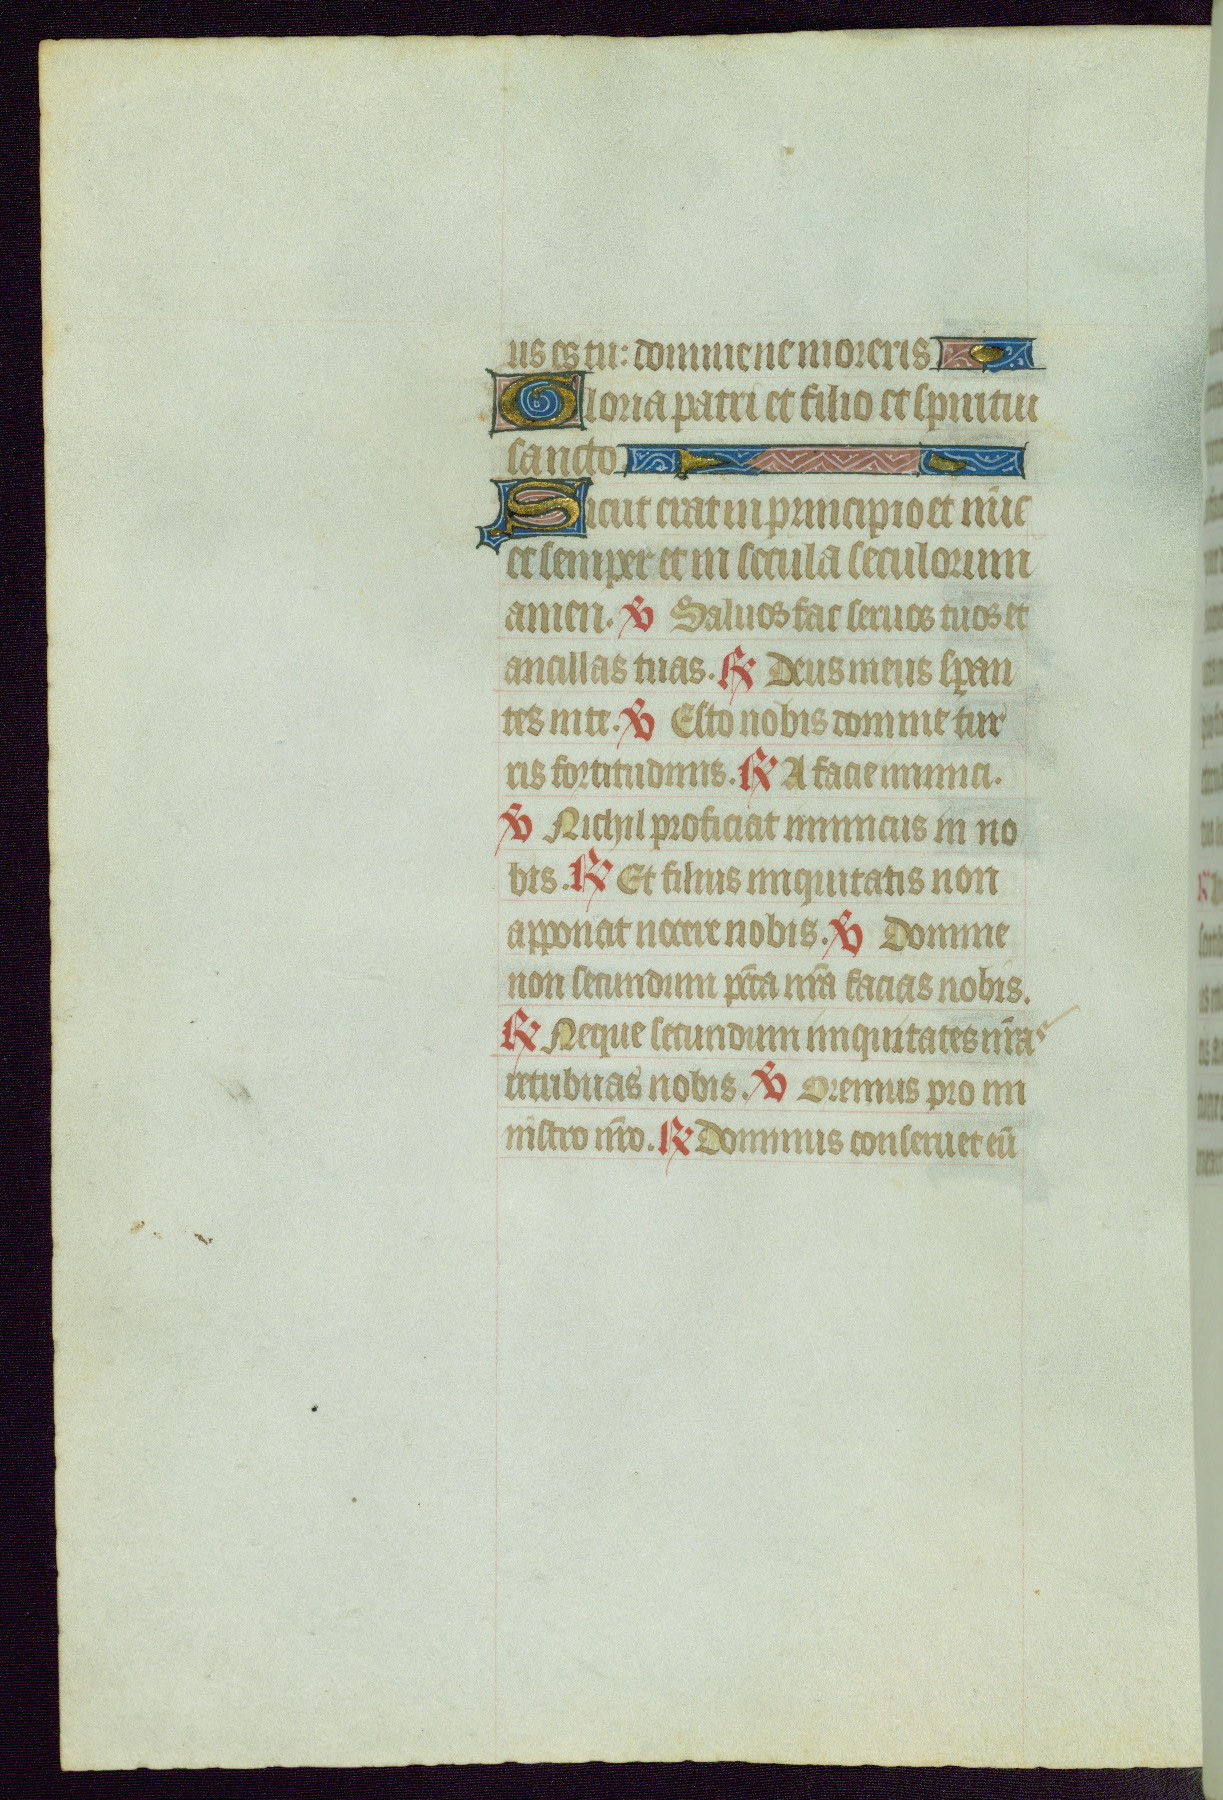 us es tu: domine ne moreris
Gloria patri et filio et spiritui
sancto
Sicut erat in principio et nu̅c
et semper et in secula seculorum
amen. ℣ Saluos fac seruos tuos et
ancillas tuas. ℟ Deus meus speran
tes in te. ℣ Esto nobis domine tur
ris fortitudinis. ℟ A facie inimici.
℣ Nichil proficiat inimicus in no
bis. ℟ Et filius iniquitatis non
apponat nocere nobis. ℣ Domine
non secundum pc̅ta nr̅a facias nobis.
℟ Neque secundum iniquitates nr̅as
retribuas nobis. ℣ Oremus pro mi
nistro nr̅o. ℟ Dominus conseruet eu̅